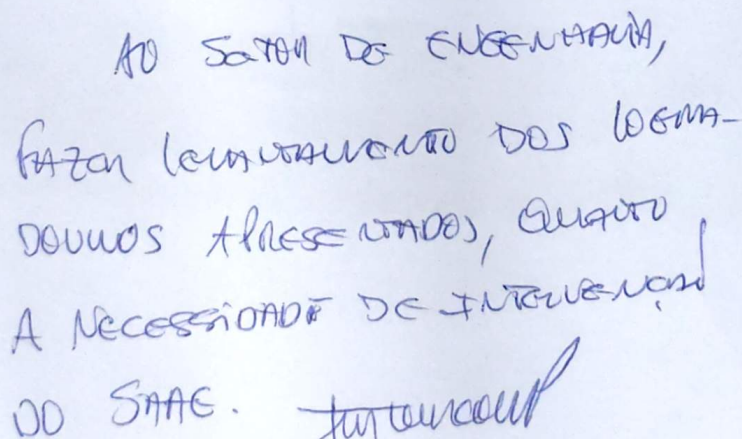 AO SETOR DE ENGENHARIA,
FAZER LEVANTAMENTO DOS LOGRA-
DOUROS APRESENTADOS, QUANTO
A NECESSIDADE DE INTERVENÇÃO
DO SAAE.